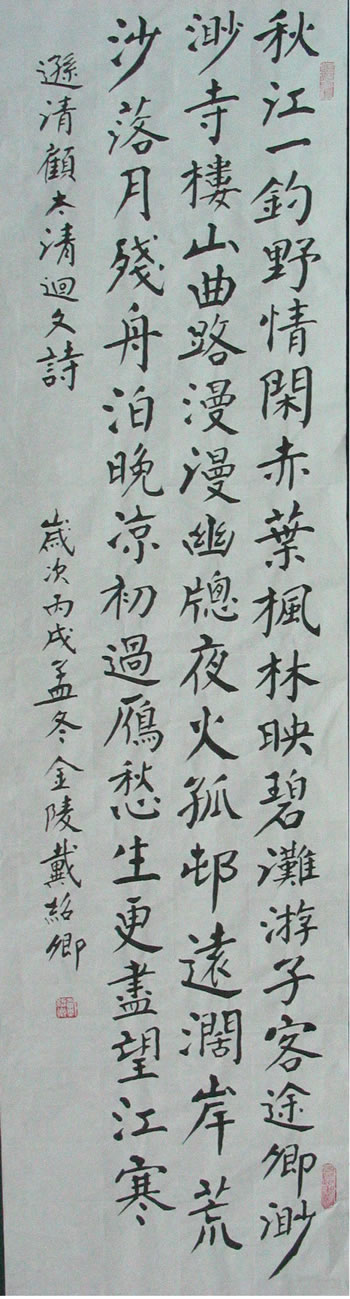 秋江一釣野情閑赤葉楓林映碧灘游子客途卿渺
渺寺樓山曲路漫漫幽牕夜火孤邨遠濶岸荒
沙落月殘舟泊晚涼初過鴈愁生更盡望江寒
遜清顧太清迴文詩
歲次丙戌孟冬金陵戴紹卿